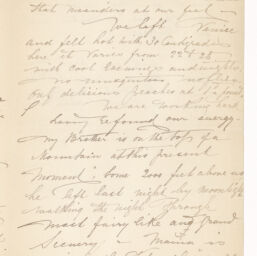 that meanders at our feet —
We left Venice
and fell hot with 30 Centigrade
here it varies from 22 to 25
with cool evenings and nights
no mosquitoes no flies
but delicious peaches at 1 a pound
We are working hard
having refound our energy.
My Brother is on the top of a
Mountain at this present
Moment; some 2000 feet above us
he left last night by moonlight
walking the night through
most fairy like and grand
Scenery, — Mama is